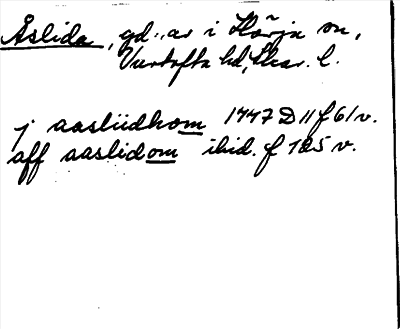 Åslida, gd.:ar i Härja sn,
Vartofta hd, Skar. l.
j aasliidhom 1447 D 11 f 61 v.
aff aaslidom ibid. f 125 v.